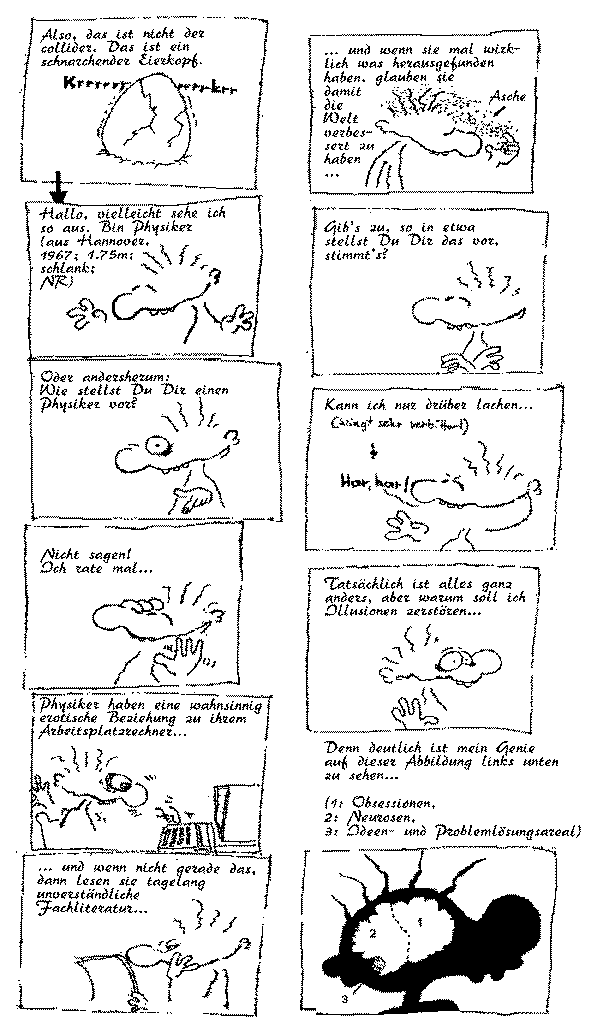 Also, das ist nicht der
collider. Das ist ein
schnarchender Eierkopf.
Krrrrrr rrrr-krr
Hallo, vielleicht sehe ich
so aus. Bin Physiker
(aus Hannover,
1967; 1.75m;
schlank;
NR)
Oder andersherum:
Wie stellst Du Dir einen
Physiker vor?
Nicht sagen!
Ich rate mal...
Physiker haben eine wahnsinnig
erotische Beziehung zu ihrem
Arbeitsplatzrechner...
... und wenn nicht gerade das,
dann lesen sie tagelang
unverständliche
Fachliteratur...
... und wenn sie mal wirk-
lich was herausgefunden
haben, glauben sie
damit
die
Welt
verbes-
sert zu
haben
...
Asche
Gib's zu, so in etwa
stellst Du Dir das vor,
stimmt's?
Kann ich nur drüber lachen...
(klingt sehr verbittert)
Har, har!
Tatsächlich ist alles ganz
anders, aber warum soll ich
Illusionen zerstören...
Denn deutlich ist mein Genie
auf dieser Abbildung links unten
zu sehen...
(1: Obsessionen,
2: Neurosen,
3: Ideen- und Problemlösungsareal)
1
2
3